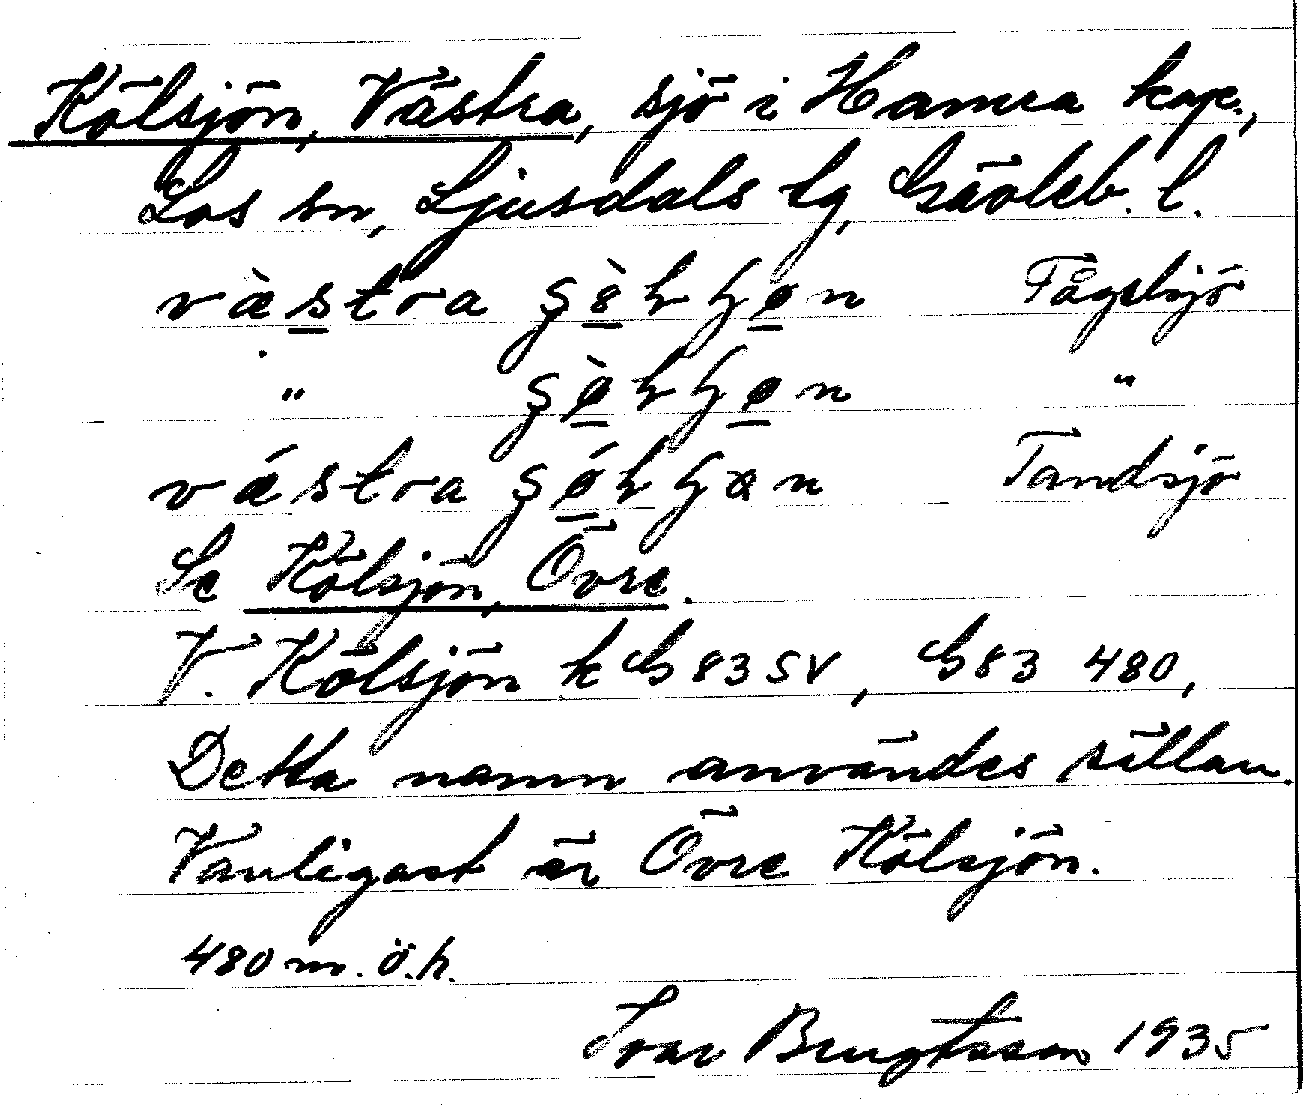 Kölsjön, Västra, sjö i Hamra kap.,
Los sn, Ljusdals tg, Gävleb. l.
västra Fågelsjö
" "
västra Tandsjö
Se Kölsjön, Övre.
V. Kölsjön k G 83 SV, G 83 480,
Detta namn användes sällan.
Vanligast är Övre Kölsjön.
480 m. ö. h.
Ivar Bengtsson 1935